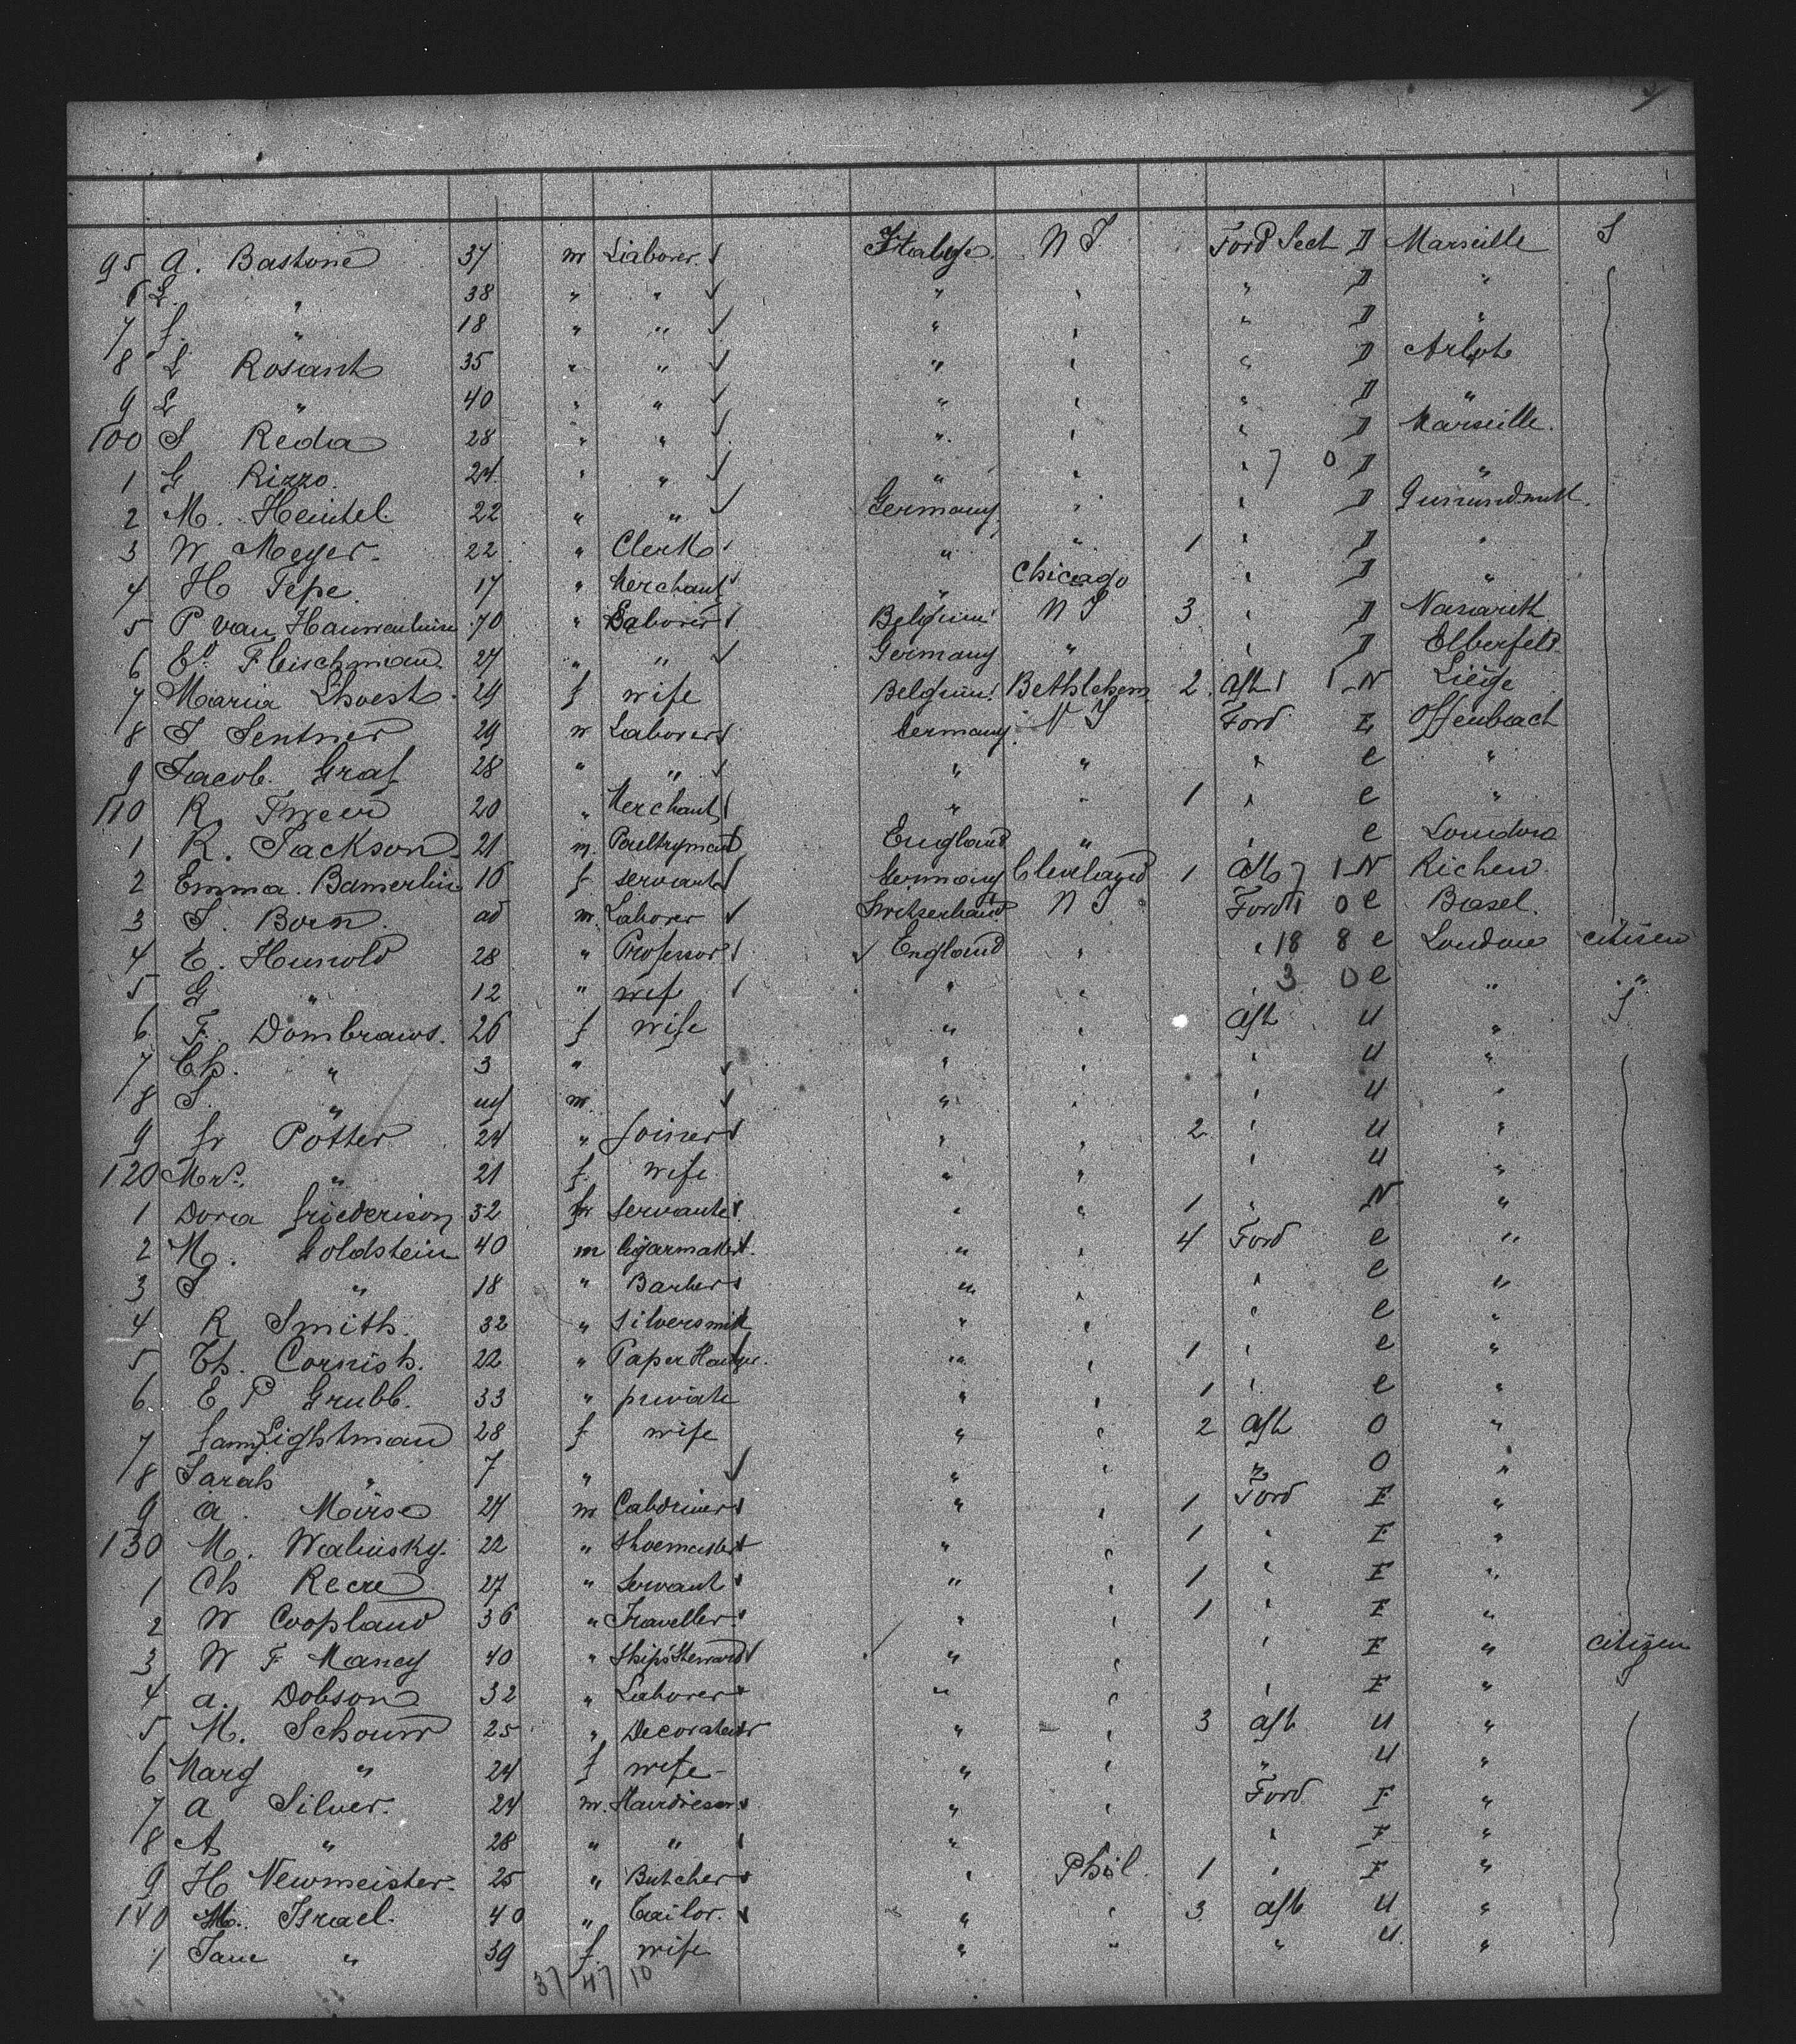 95 A. Bastone 37 m Laborer Italy N Y Ford Sect D Marseille S
6 L. " 38 " " " " " D "
7 f. " 18 " " " " " D "
8 L Rosant 35 " " " " " D
9 L " 40 " " " " " D "
100 S Reda 28 " " " " " D Marseille.
1 G Rizzo. 24 " " " " " 7 0 D "
2 M. Heintel 22 " " Germany " " D
3 W Meyer. 22 " Clerk " " 1 " D "
4 H Tepe. 17 " Merchant " Chicago " D "
5 P van 70 " Laborer Belgium N Y 3 " D Nasarith
6 Ed. Fleischman 27 " " Germany " " D Elberfeld
7 Maria Lhoest. 29 f wife Belgium Bethlehem 2 aft 1 1 N Liége
8 J Sentner 29 m Laborer Germany N Y Ford E Offenbach
9 Jacob Graf 28 " " " " " e "
110 R. 20 " Merchant " " 1 " e "
1 R. Jackson 21 m. Poultryman England " " e London
2 Emma Bamerlin 16 f servant Germany Cleveland 1 aft 7 1 N Richen
3 S. Born. ad m. Laborer Switserland N Y Ford 1 0 e Basel.
4 E. Hunold 28 " Professor England " " 18 8 e London citisen
5 G " 12 " wife " " " 3 0 e " "
6 F. Dombraws. 26 f wife " " aft U " S
7 Ch. " 3 " " " " U "
8 S. " m. " " " U "
9 fr Potter 24 " Joiner " " 2 " U "
120 Mrs. " 21 f wife " " " U "
1 Dora friederison 32 f servant " " 1 " N "
2 M. Goldstein 40 m Cigarmaker " " 4 Ford e "
3 S " 18 " Barber " " " e "
4 R Smith. 32 " Silversmith " " " e "
5 Th. Cornish. 22 " Paper Hanger. " " 1 " e "
6 E P Grubb. 33 " private " " 1 " e "
7 fanny Lightman 28 f wife " " 2 aft O "
8 Sarah " 7 " " " " O "
9 a. Moise 24 m Cabdriver " " 1 Ford E "
130 M. Walinsky. 22 " Shoemaker " " 1 " E "
1 Ch 27 " Servant " " 1 " E "
2 W Coopland 36 " Traveller " " 1 " E "
3 W F Maney 40 " Ship's Steward " " " E " citizen
4 a. Dobson 32 " Laborer " " " E " S
5 M. Schourr 25 " Decorateur " " 3 aft U "
6 Marg " 24 f wife - " " " U "
7 a Silver. 24 m. Hairdresser " " Ford E "
8 A " 28 " " " " E "
9 H Newmeister. 25 " Butcher " Phil. 1 " E "
140 M. Israel. 40 " Tailor. " " 3 aft U "
1 Jane " 39 f. wife " " " U. "
37 47 10